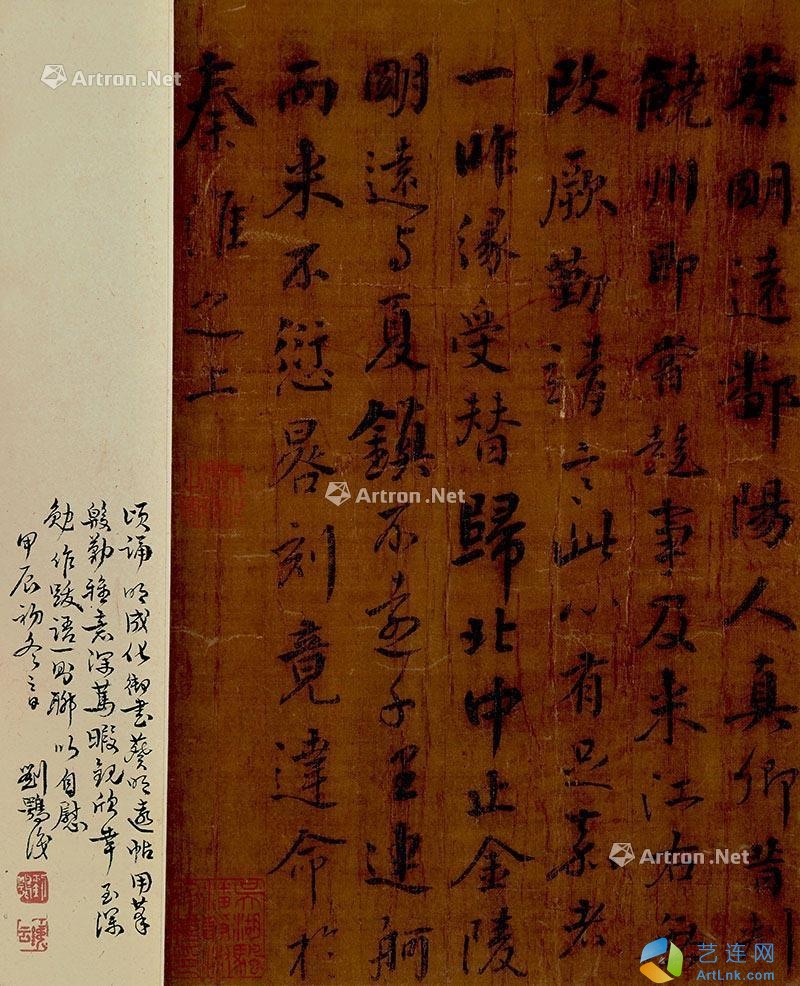 蔡明遠鄱陽人真卿昔刺
饒州即嘗趍事及来江右無
改厥勤靖言此心有足嘉者
一昨緣受替歸北中止金陵
明遠与夏鎮不遠千里連舸
而来不愆晷刻竟達命於
秦淮之上
頃誦明成化御書蔡明遠帖用筆
殷勤雅意深篤暇觀欣幸至深
勉作跋語一則聊以自慰
甲辰初冬三日
劉
Artron.Net
Artron.Net
Artron.Net
艺连网
ArtLnk.Com